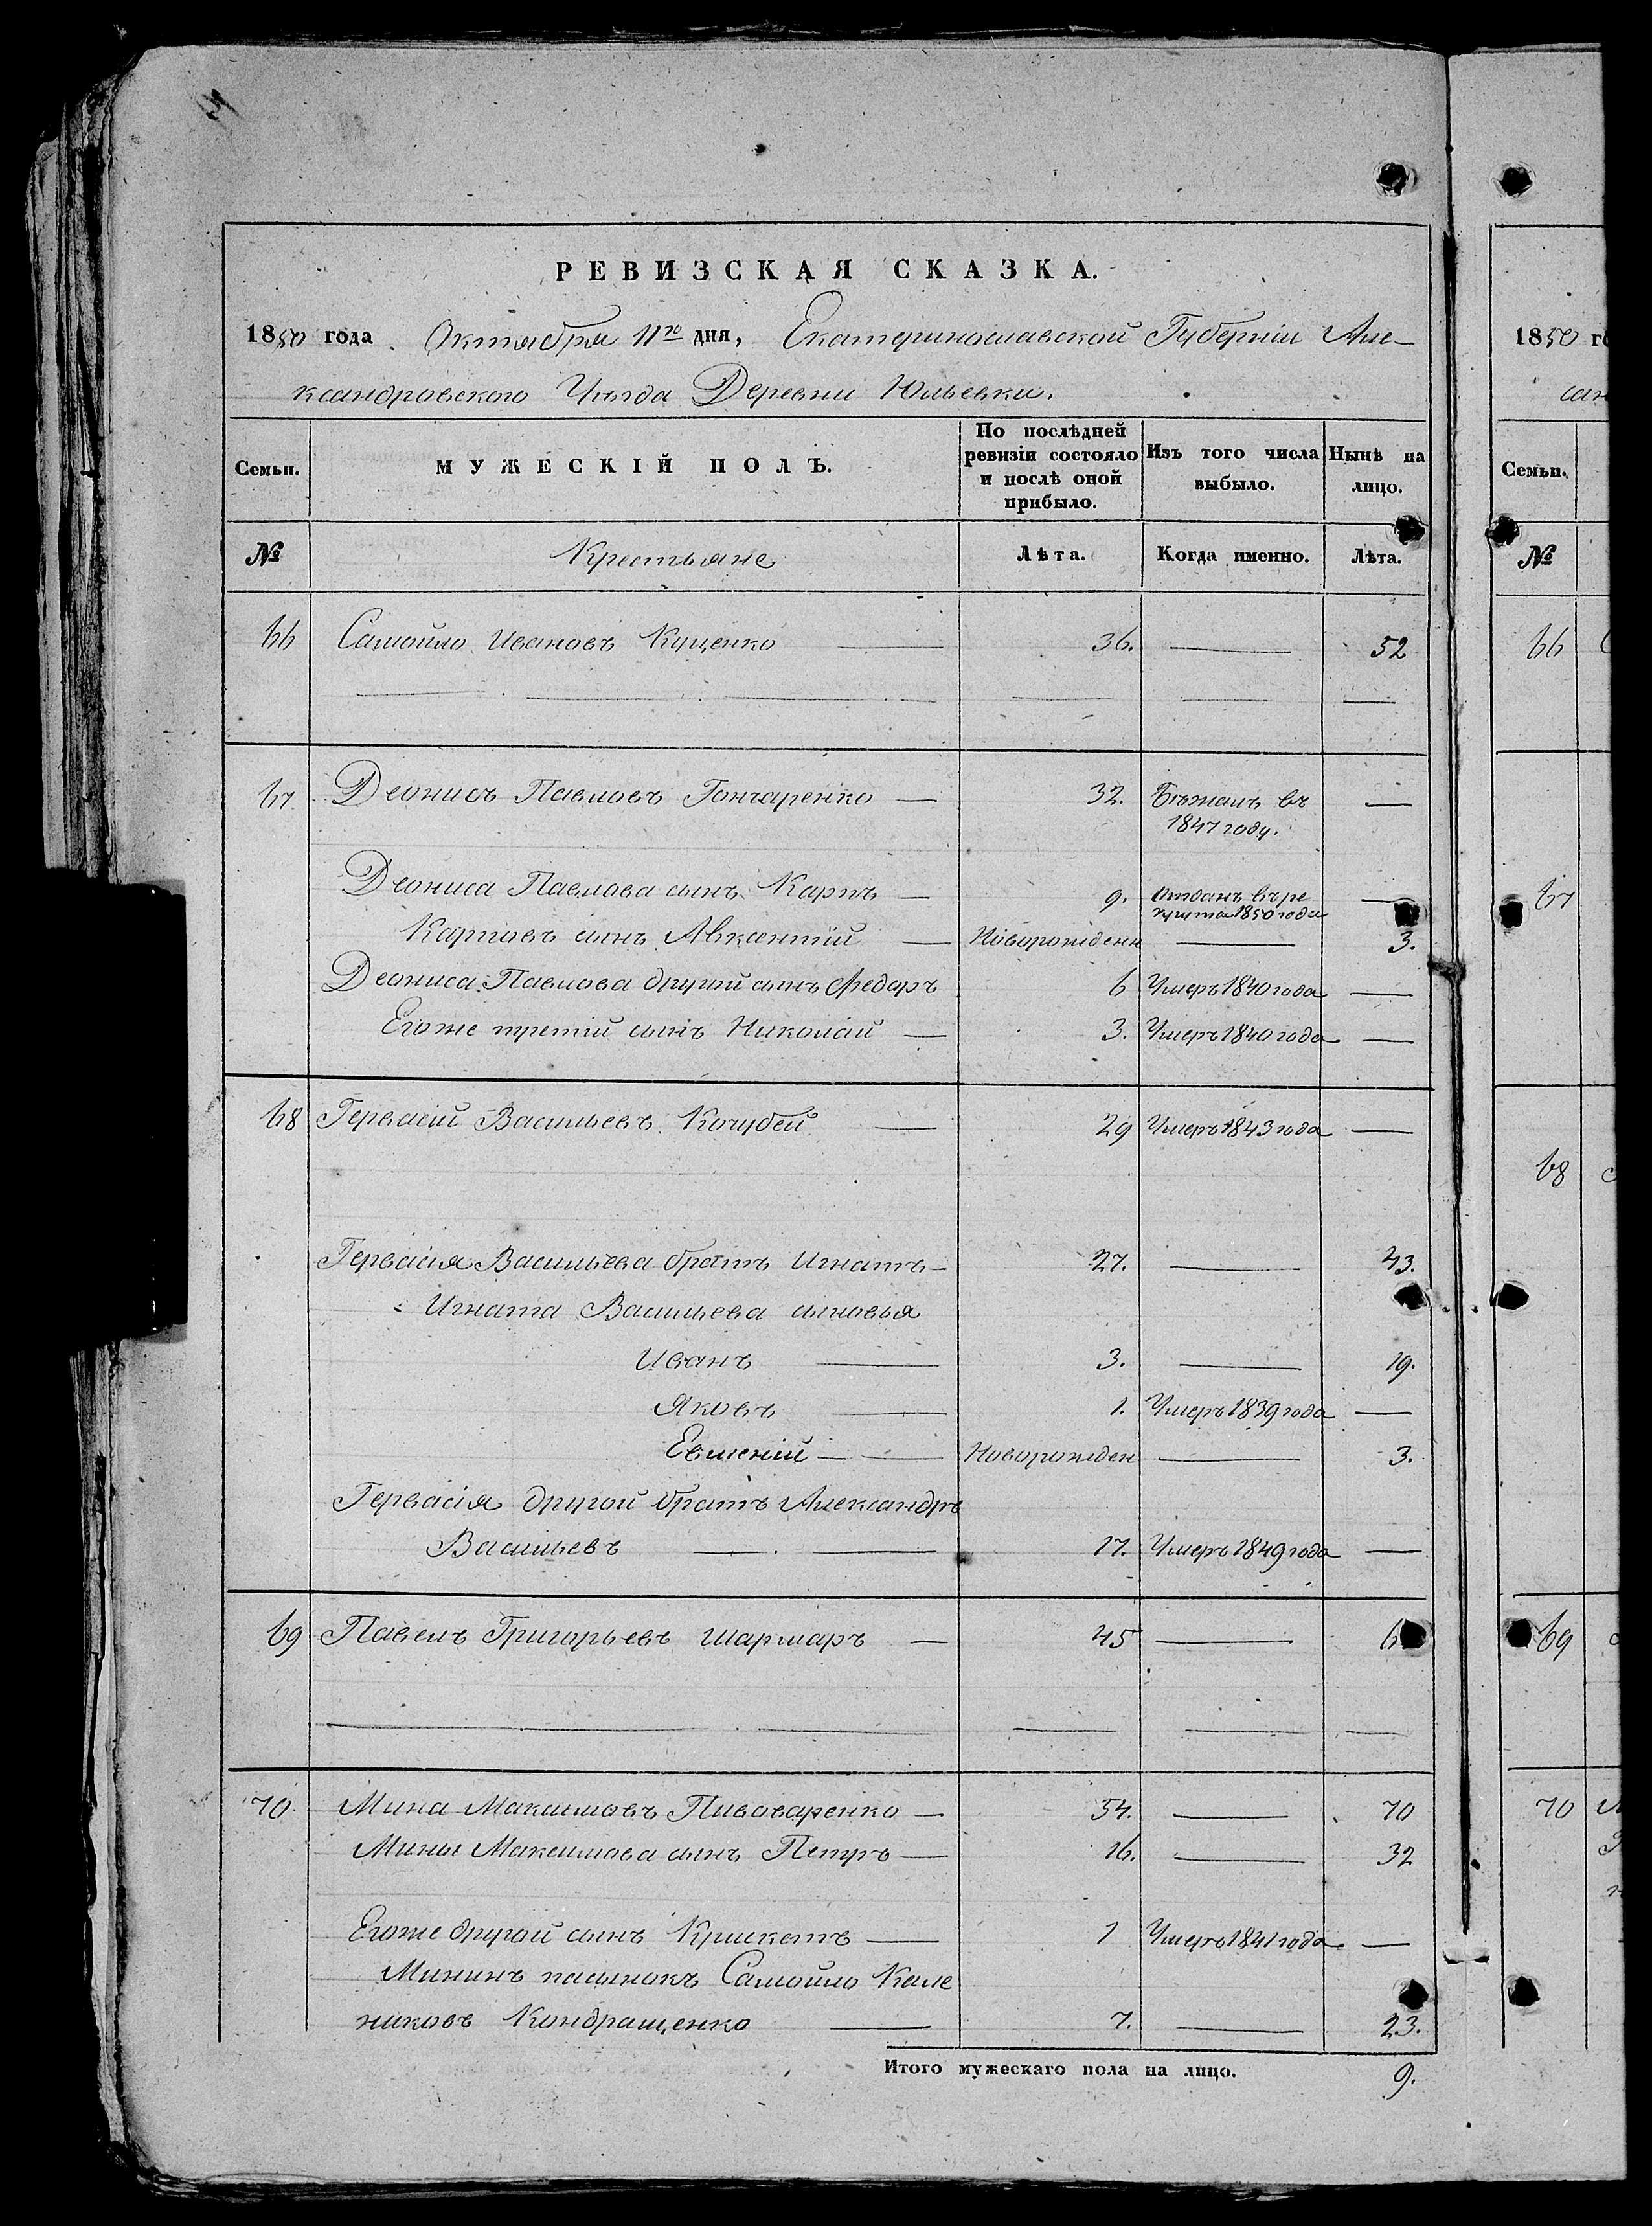 РЕВИЗСКАЯ СКАЗКА.
1850 года Октября 11го дня, Екатеринославской Губерніи Але-
ксандровскаго Уѣзда Деревни Юльевки.
Семьи. МУЖЕСКІЙ ПОЛЪ. По послѣдней ревизіи состояло и послѣ оной прибыло. Изъ того числа выбыло. Нынѣ на лицо.
№ Крестьяне Лѣта. Когда именно. Лѣта.
66 Самойло Ивановъ Куценко — 36. — 52
67 Деонисъ Павловъ Гончаренко — 32. Бѣжалъ въ 1847 году. —
Деониса Павлова сынъ Карпъ — 9. Отданъ въ ре
крута 1850 года —
Карповъ сынъ Авксентій — Новорожденн — 3.
Деониса Павлова другой сынъ Федоръ 6 Умеръ 1840 года —
Егоже третій сынъ Николай — 3. Умеръ 1840 года —
68 Гервасій Васильевъ Кочубей — 29 Умеръ 1843 года —
Гервасія Васильева братъ Игнатъ — 27. — 43.
Игната Васильева сыновья
Иванъ — 3. — 19.
Яковъ — 1. Умеръ 1839 года —
Евгеній — Новорожден — 3.
Гервасія другой братъ Александръ
Васильевъ — 17. Умеръ 1849 года —
69 Павелъ Григорьевъ Шаршаръ — 45 — 6
70 Мина Максимовъ Пивоваренко — 54. — 70
Мины Максимова сынъ Петръ — 16. — 32
Егоже другой сынъ 1 Умеръ 1841 года —
Мининъ пасынокъ Самойло Кале
никовъ Кондращенко — 7. — 23.
Итого мужескаго пола на лицо. 9.
1850 го
сан
Семьи.
№
66
67
68
69
70